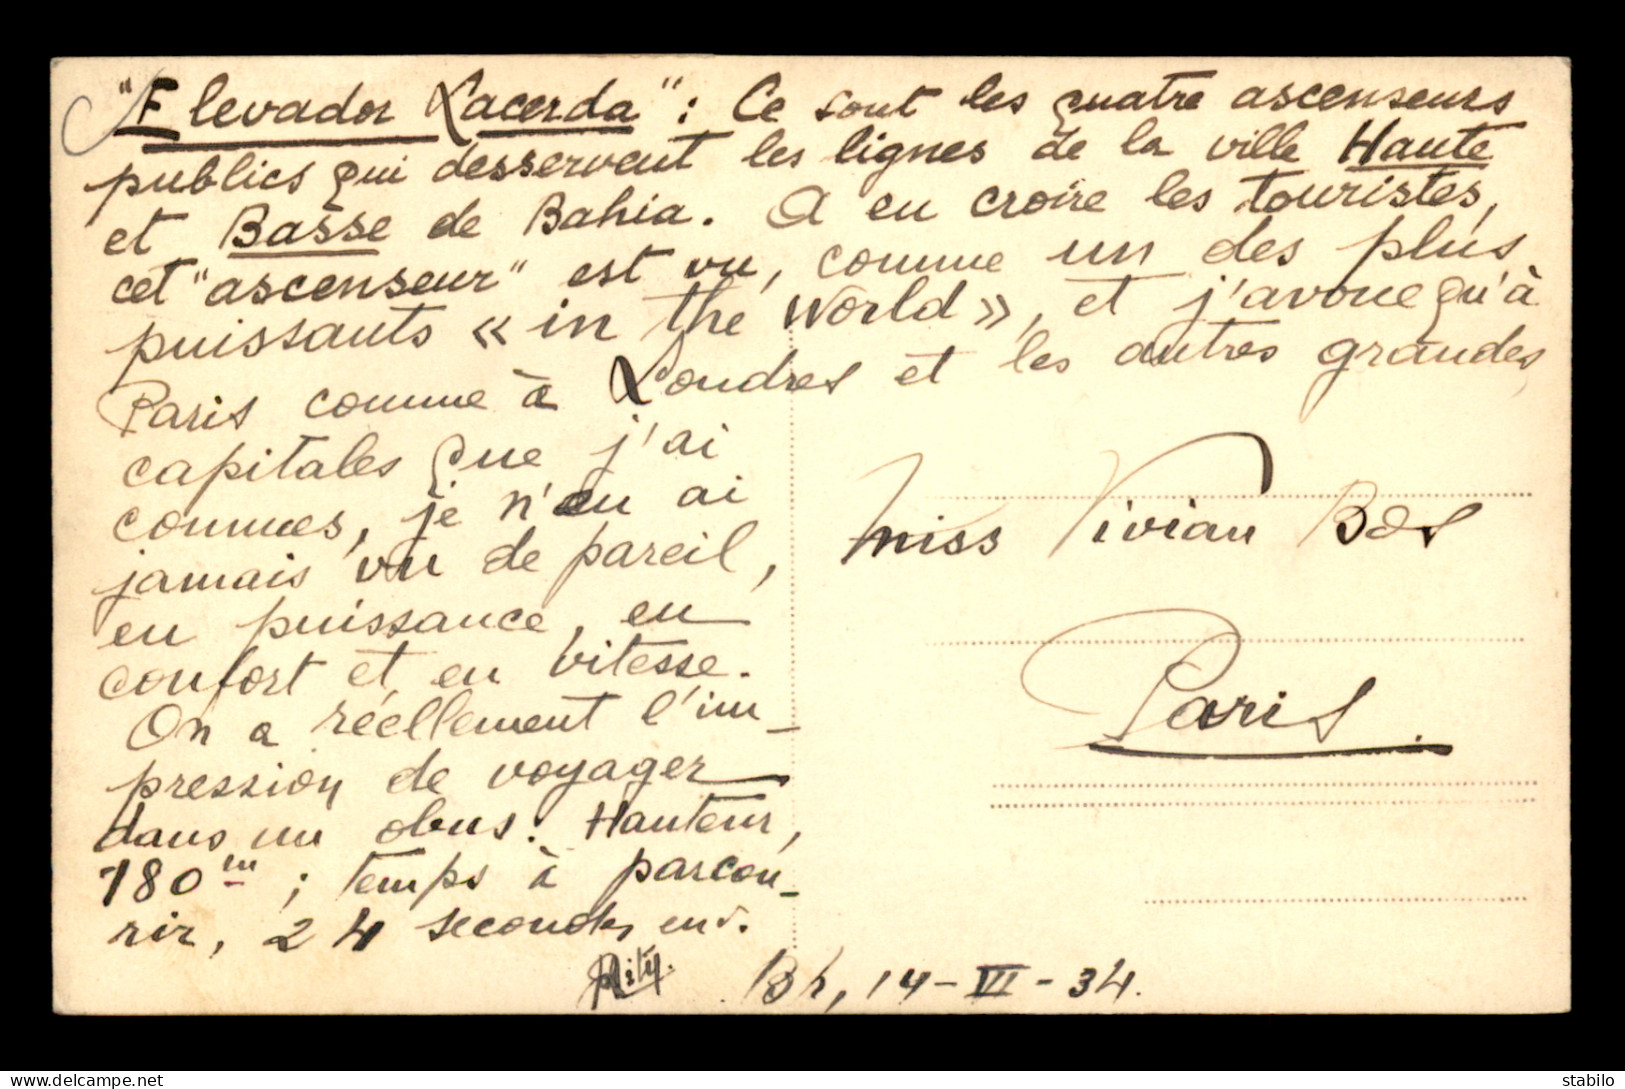 "Elevador Lacerda": Ce sont les quatre ascenseurs
publics qui desservent les lignes de la ville Haute
et Basse de Bahia. A en croire les touristes,
cet "ascenseur" est vu, comme un des plus
puissants « in the World », et j'avoue qu'à
Paris comme à Londres et les autres grandes
capitales que j'ai
connues, je n'en ai
jamais vu de pareil,
en puissance, en
confort et en vitesse.
On a réellement l'im-
pression de voyager
dans un obus. Hauteur,
180m; temps à parcou-
rir, 24 secondes env.
Bh, 14-VI-34.
Miss Vivian Bos
Paris.
delcampe.net
stabilo